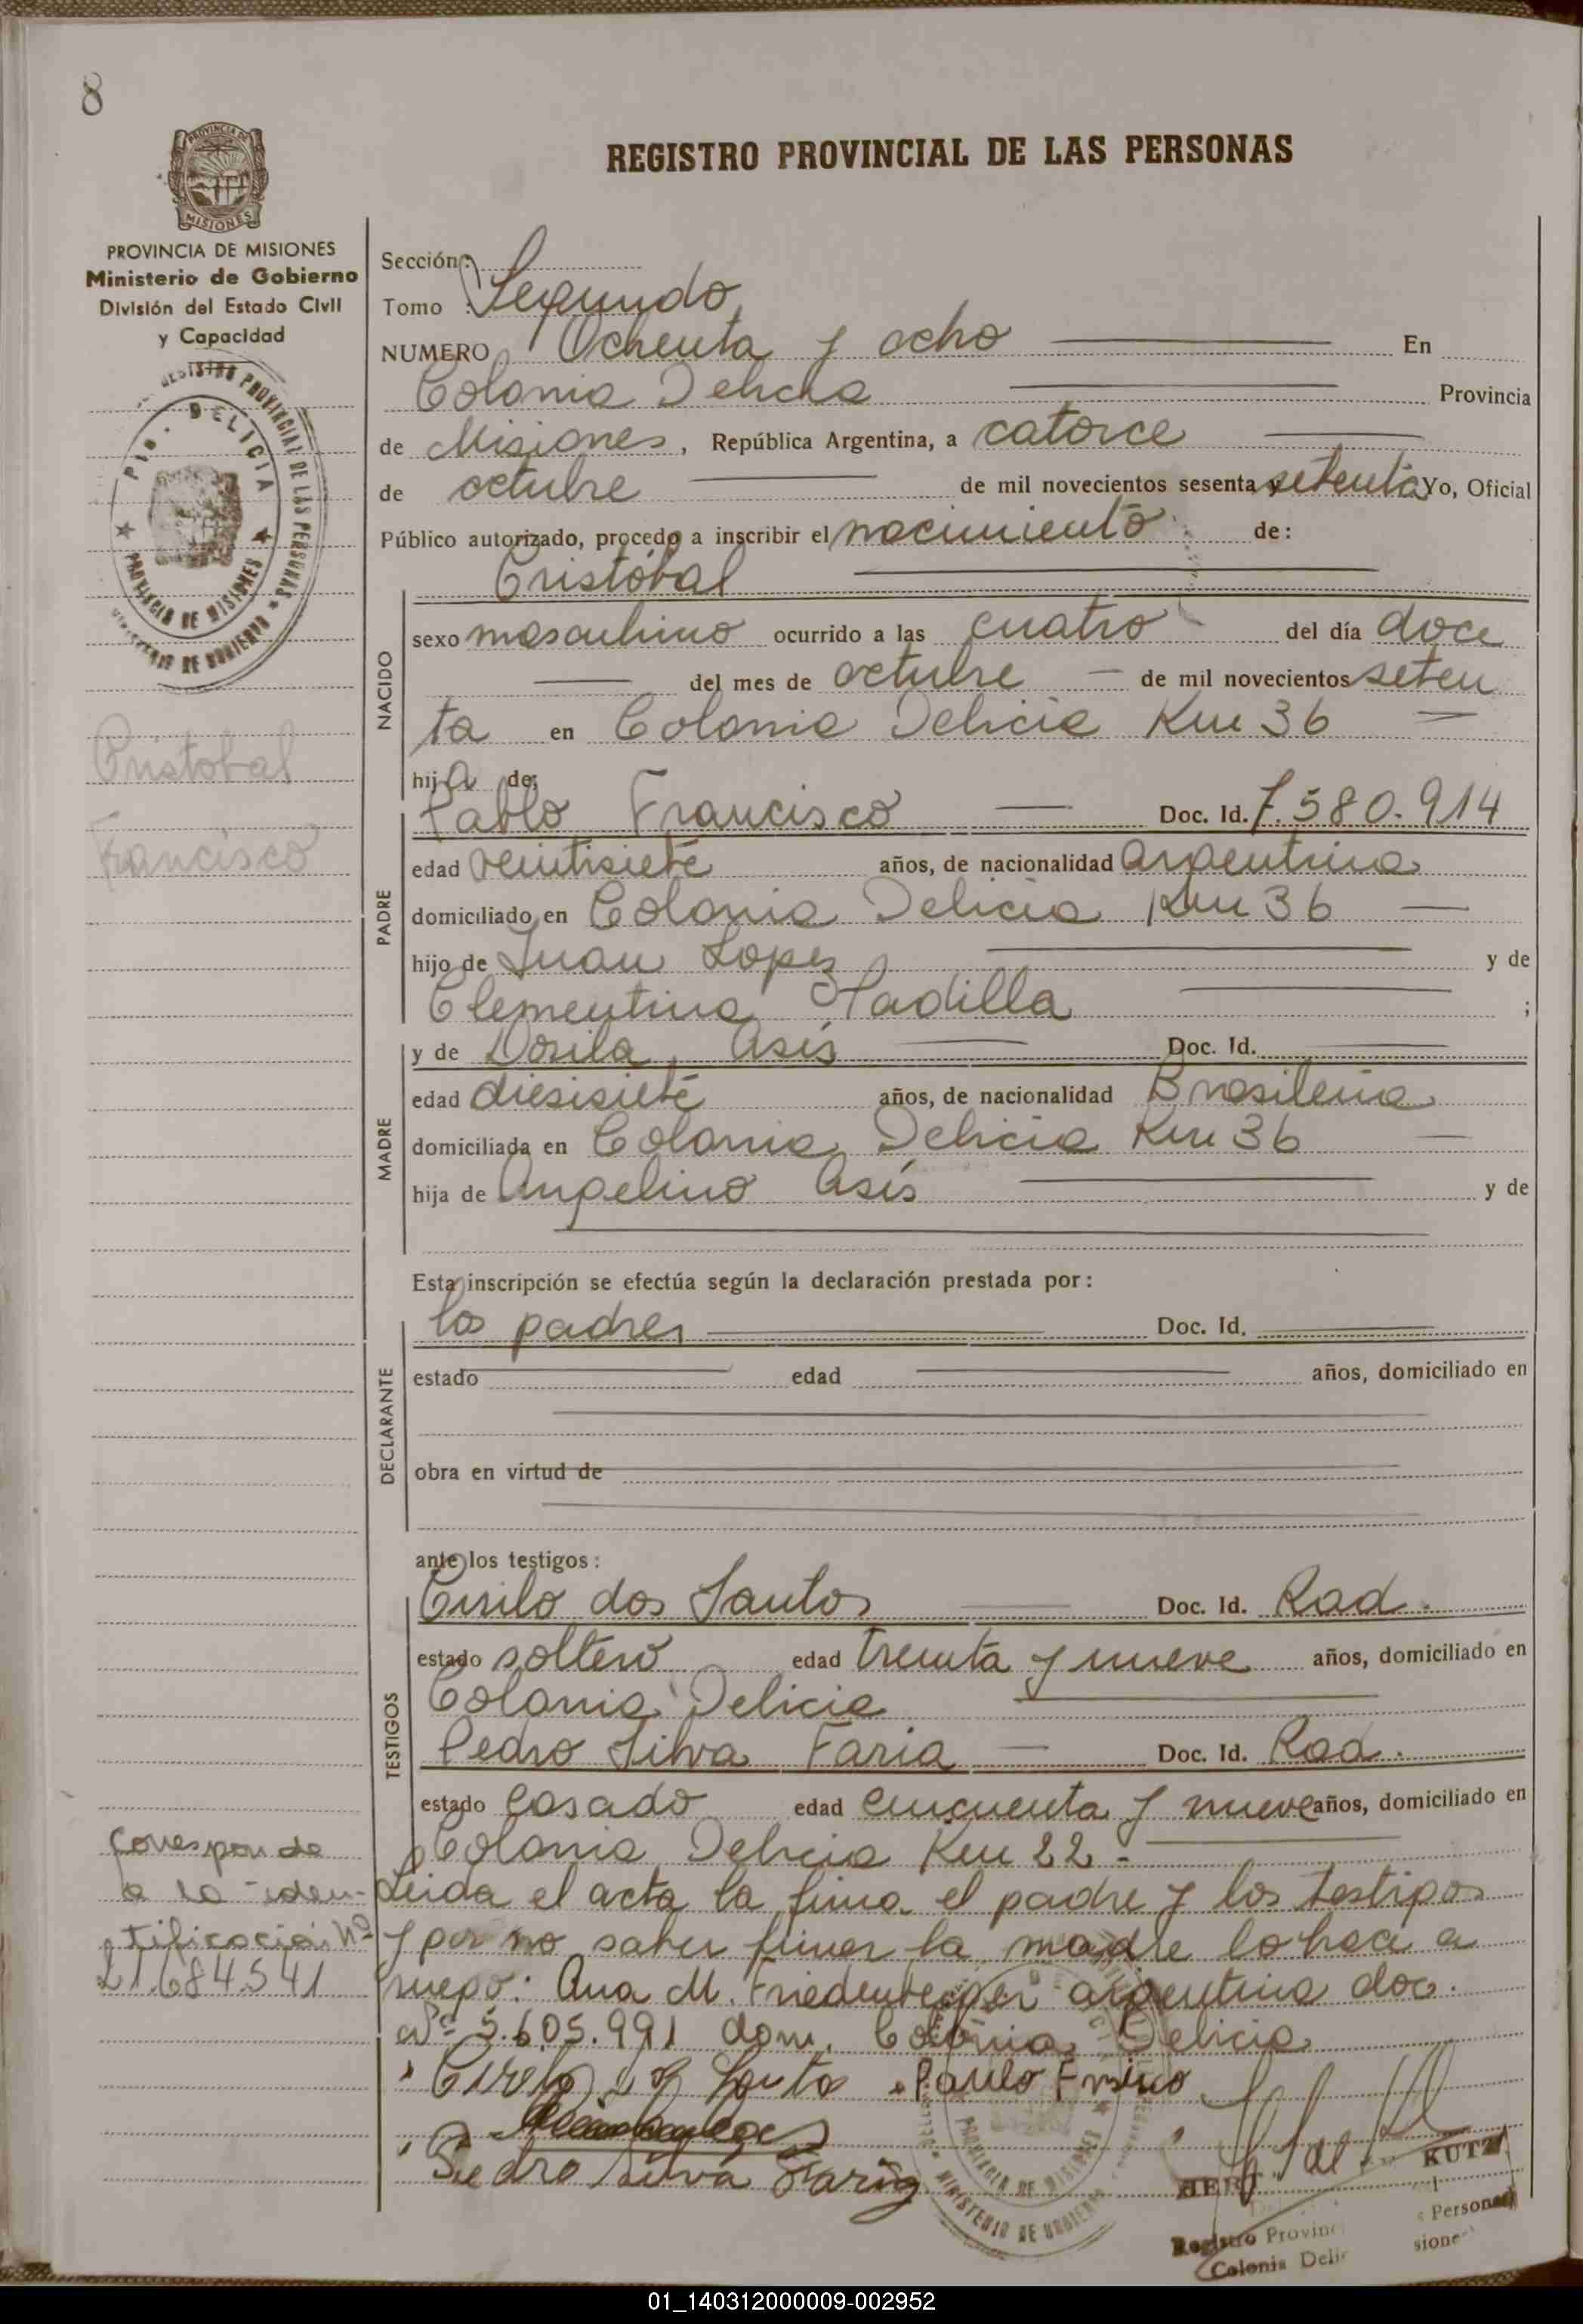 8
PROVINCIA DE MISIONES
MISIONES
PROVINCIA DE MISIONES
Ministerio de Gobierno
División del Estado Civil
y Capacidad
REGISTRO PROVINCIAL DE LAS PERSONAS
Sección:
Tomo : Segundo
NUMERO Ochenta y ocho En
Colonia Delicia Provincia
de Misiones, República Argentina, a catorce
de octubre de mil novecientos sesenta y setenta Yo, Oficial
Público autorizado, procedo a inscribir el nacimiento de:
Cristóbal
NACIDO
sexo masculino ocurrido a las cuatro del día doce
del mes de octubre de mil novecientos seten
ta en Colonia Delicia Km 36
hijo de:
PADRE
Pablo Francisco Doc. Id. 7.580.914
edad veintisiete años, de nacionalidad argentina
domiciliado en Colonia Delicia Km 36
hijo de Juan Lopez y de
Clementina Padilla ;
MADRE
y de Dorila Asis Doc. Id.
edad diesisiete años, de nacionalidad Brasileña
domiciliada en Colonia Delicia Km 36
hija de Angelino Asis y de
Esta inscripción se efectúa según la declaración prestada por:
DECLARANTE
los padres Doc. Id.
estado edad años, domiciliado en
obra en virtud de
ante los testigos:
TESTIGOS
Cirilo dos Santos Doc. Id. Rad.
estado soltero edad treinta y nueve años, domiciliado en
Colonia Delicia
Pedro Silva Faria Doc. Id. Rad.
estado casado edad cincuenta y nueve años, domiciliado en
Colonia Delicia Km 22-
Leida el acta la firma el padre y los testigos
y por no saber firmar la madre lo hace a
ruego: Ana M. argentina doc.
Nº 5.605.991 dom. Colonia Delicia
Pedro Silva Faria
KUTZ
Registro Provinc
Personas
Colonia Delic
sione
REGISTRO PROVINCIAL DE LAS PERSONAS
DELICIA
PROVINCIA DE MISIONES
MINISTERIO DE GOBIERNO
Cristobal
Francisco
Corresponde
a la iden-
tificación Nº
21.684.541
PROVINCIA DE MISIONES
MINISTERIO DE GOBIERNO
01_140312000009-002952